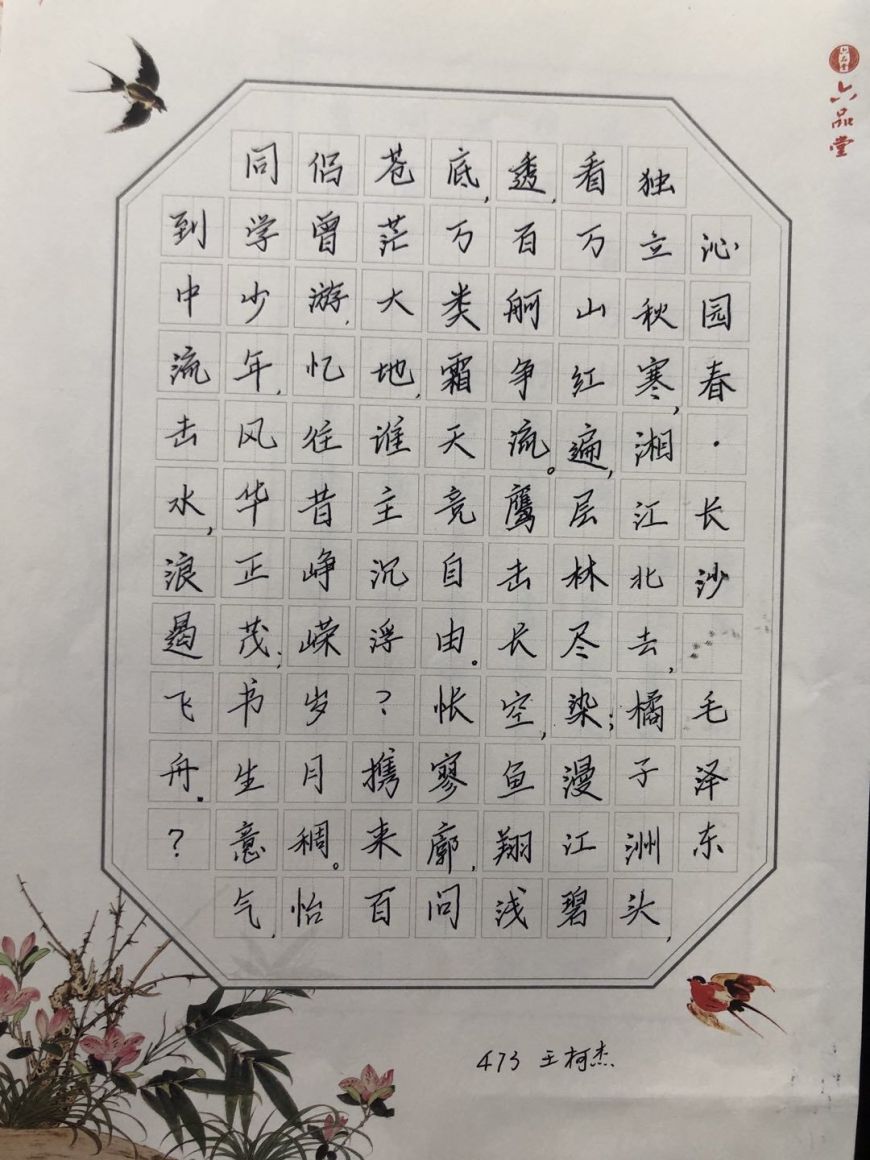 六品堂
六品堂
沁园春·长沙 毛泽东
独立秋寒,湘江北去,橘子洲头,
看万山红遍,层林尽染;漫江碧
透,百舸争流。鹰击长空,鱼翔浅
底,万类霜天竞自由。怅寥廓,问
苍茫大地,谁主沉浮?携来百
侣曾游,忆往昔峥嵘岁月稠。怡
同学少年,风华正茂;书生意气,
到中流击水,浪遏飞舟。?
473 王柯杰